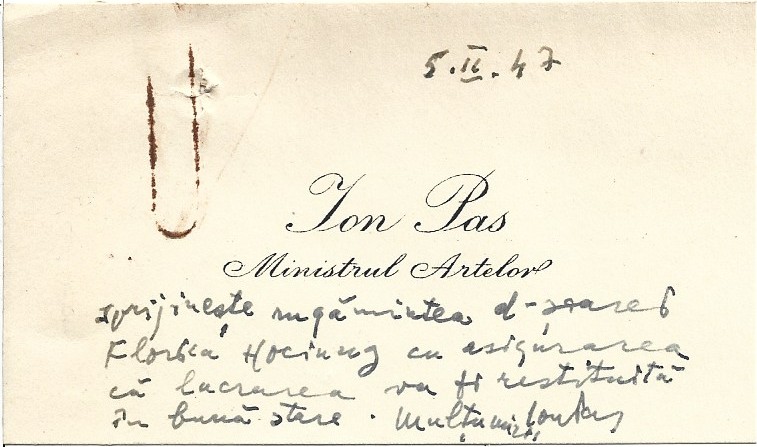 5.II.47
Ion Pas
Ministrul Artelor
sprijinește rugămintea
Florica Hociung cu asigurarea
că lucrarea va fi restituită
în bună stare. Mulțumiri,